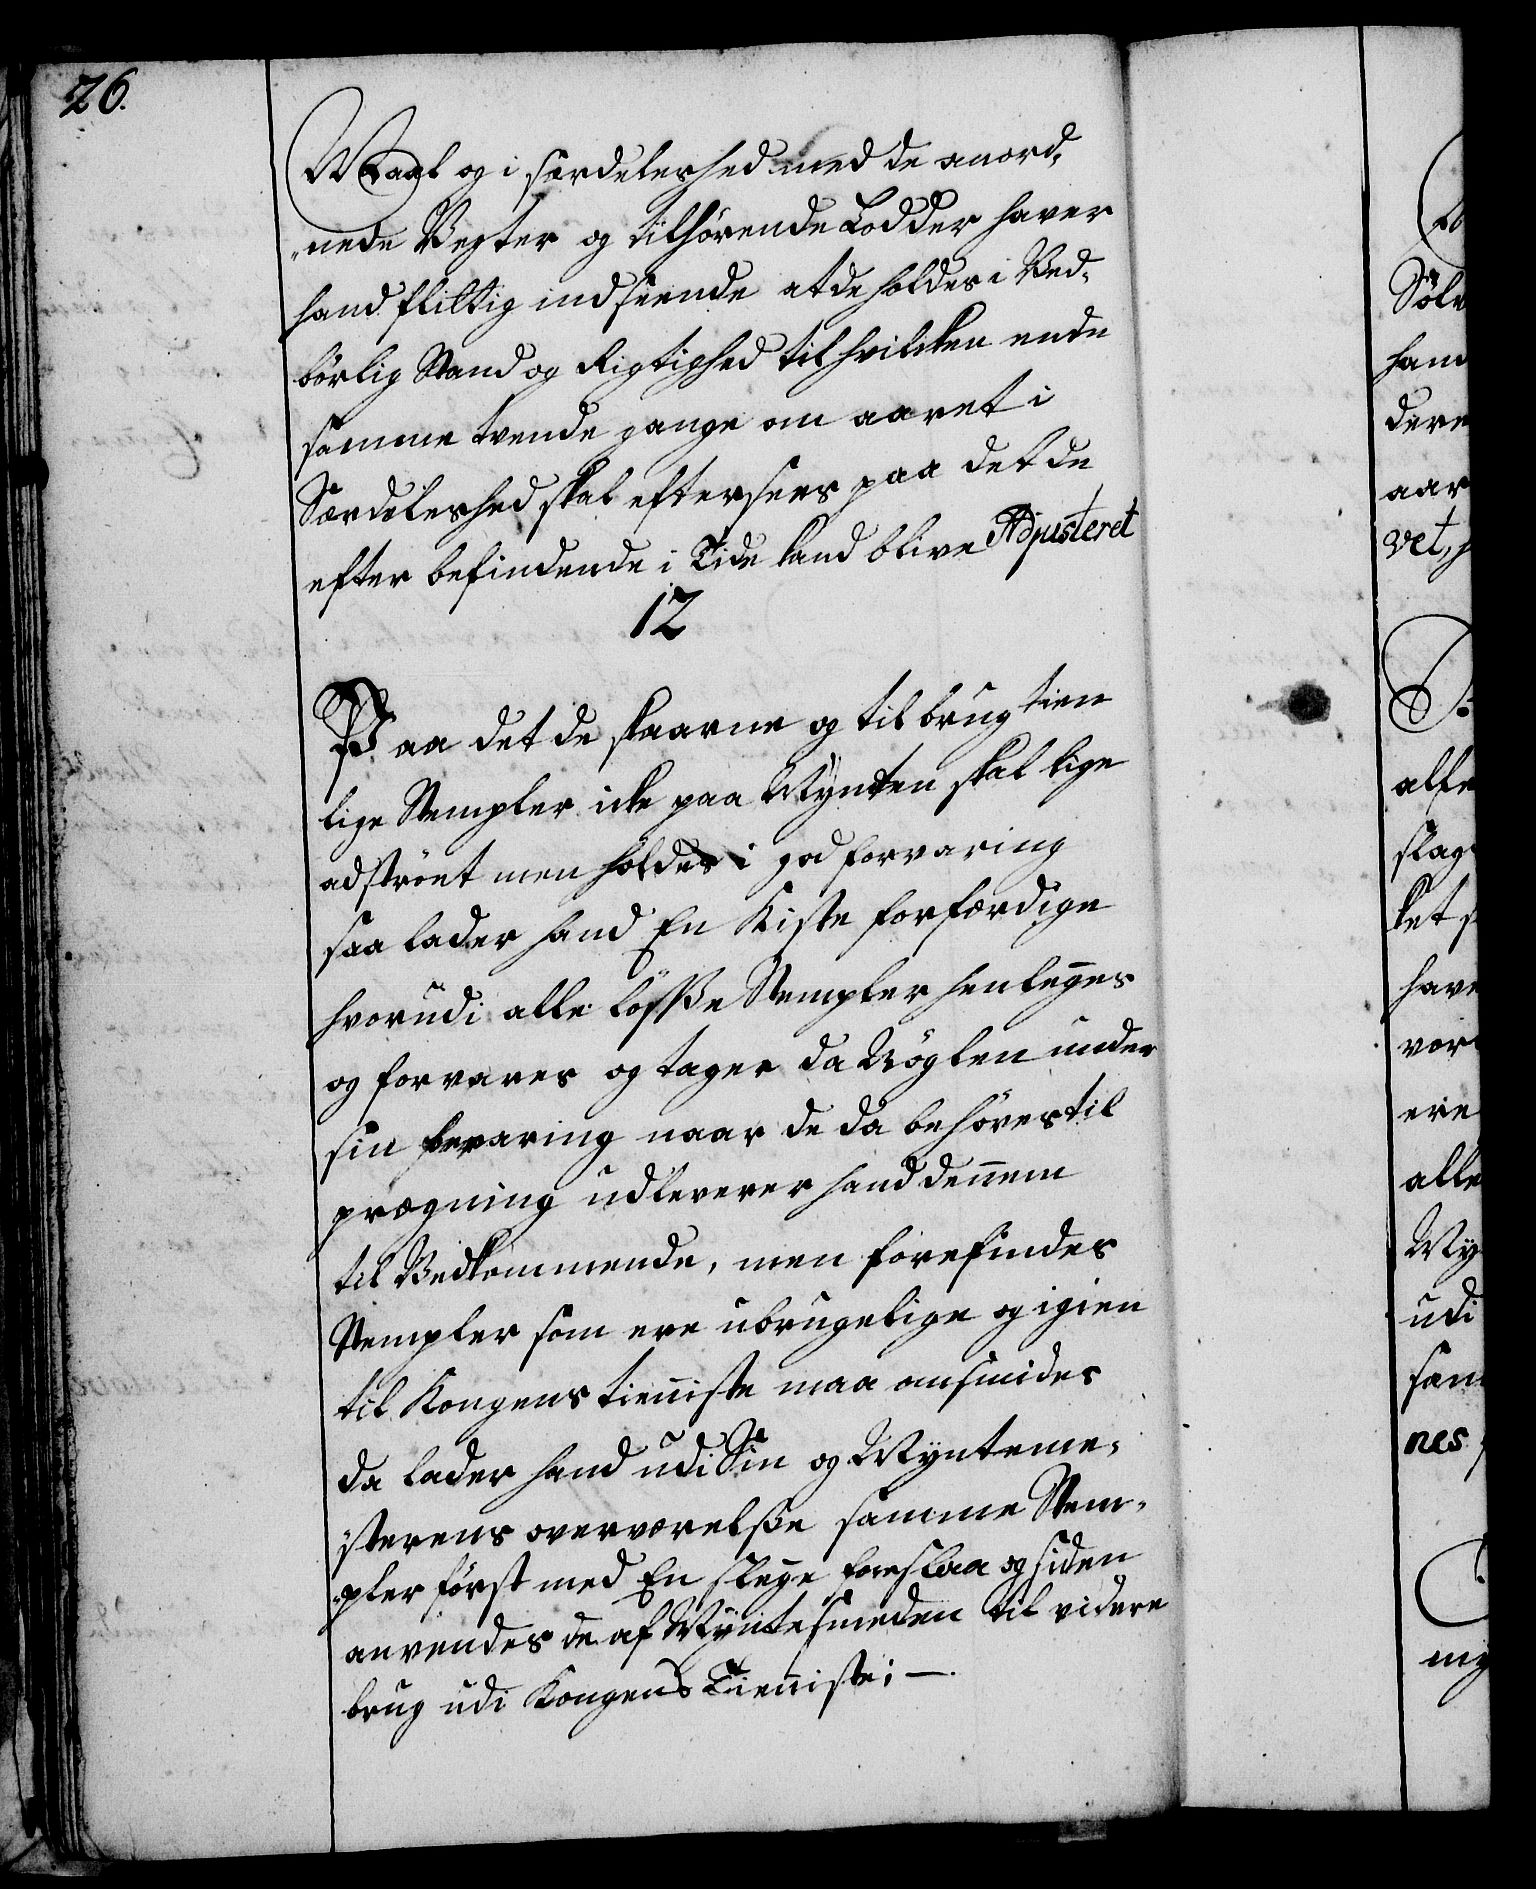 26.
Maal og i særdeleshed med de anord„
„nede Vegter og tilhørende Lodder haver
hand flittig indseende at de holdes i Ved„
børlig Stand og Rigtighed til hvilcken ende
samme tvende gange om aaret i
Særdeleshed skal eftersees paa det de
efter befindende i Tide kand blive Adjusteret
12
Paa det de skaarne og til brug tien
lige Stempler icke paa Mynten skal lige
adströet men holdes i god forvaring
saa lader hand En Kiste forfærdige
hvorudi alle løsße Stempler henleges
og forvares og tager da Nöglen under
sin bevaring naar de da behöves til
prægning udleverer hand dennem
til Vedkommende, men forefindes
Stempler som ere ubrugelige og igien
til Kongens tienniste maa omsmides
da lader hand udi Sin og Mynteme„
„sterens overværelsße samme Stem„
„pler först med En slege foreslaa og siden
anvendes de af Myntesmeden til videre
brug udi Kongens Tienniste; —.
Sölv
hand
aar
vet,
slag
ket
have
vor
ere
alle
My
udi
nes
my